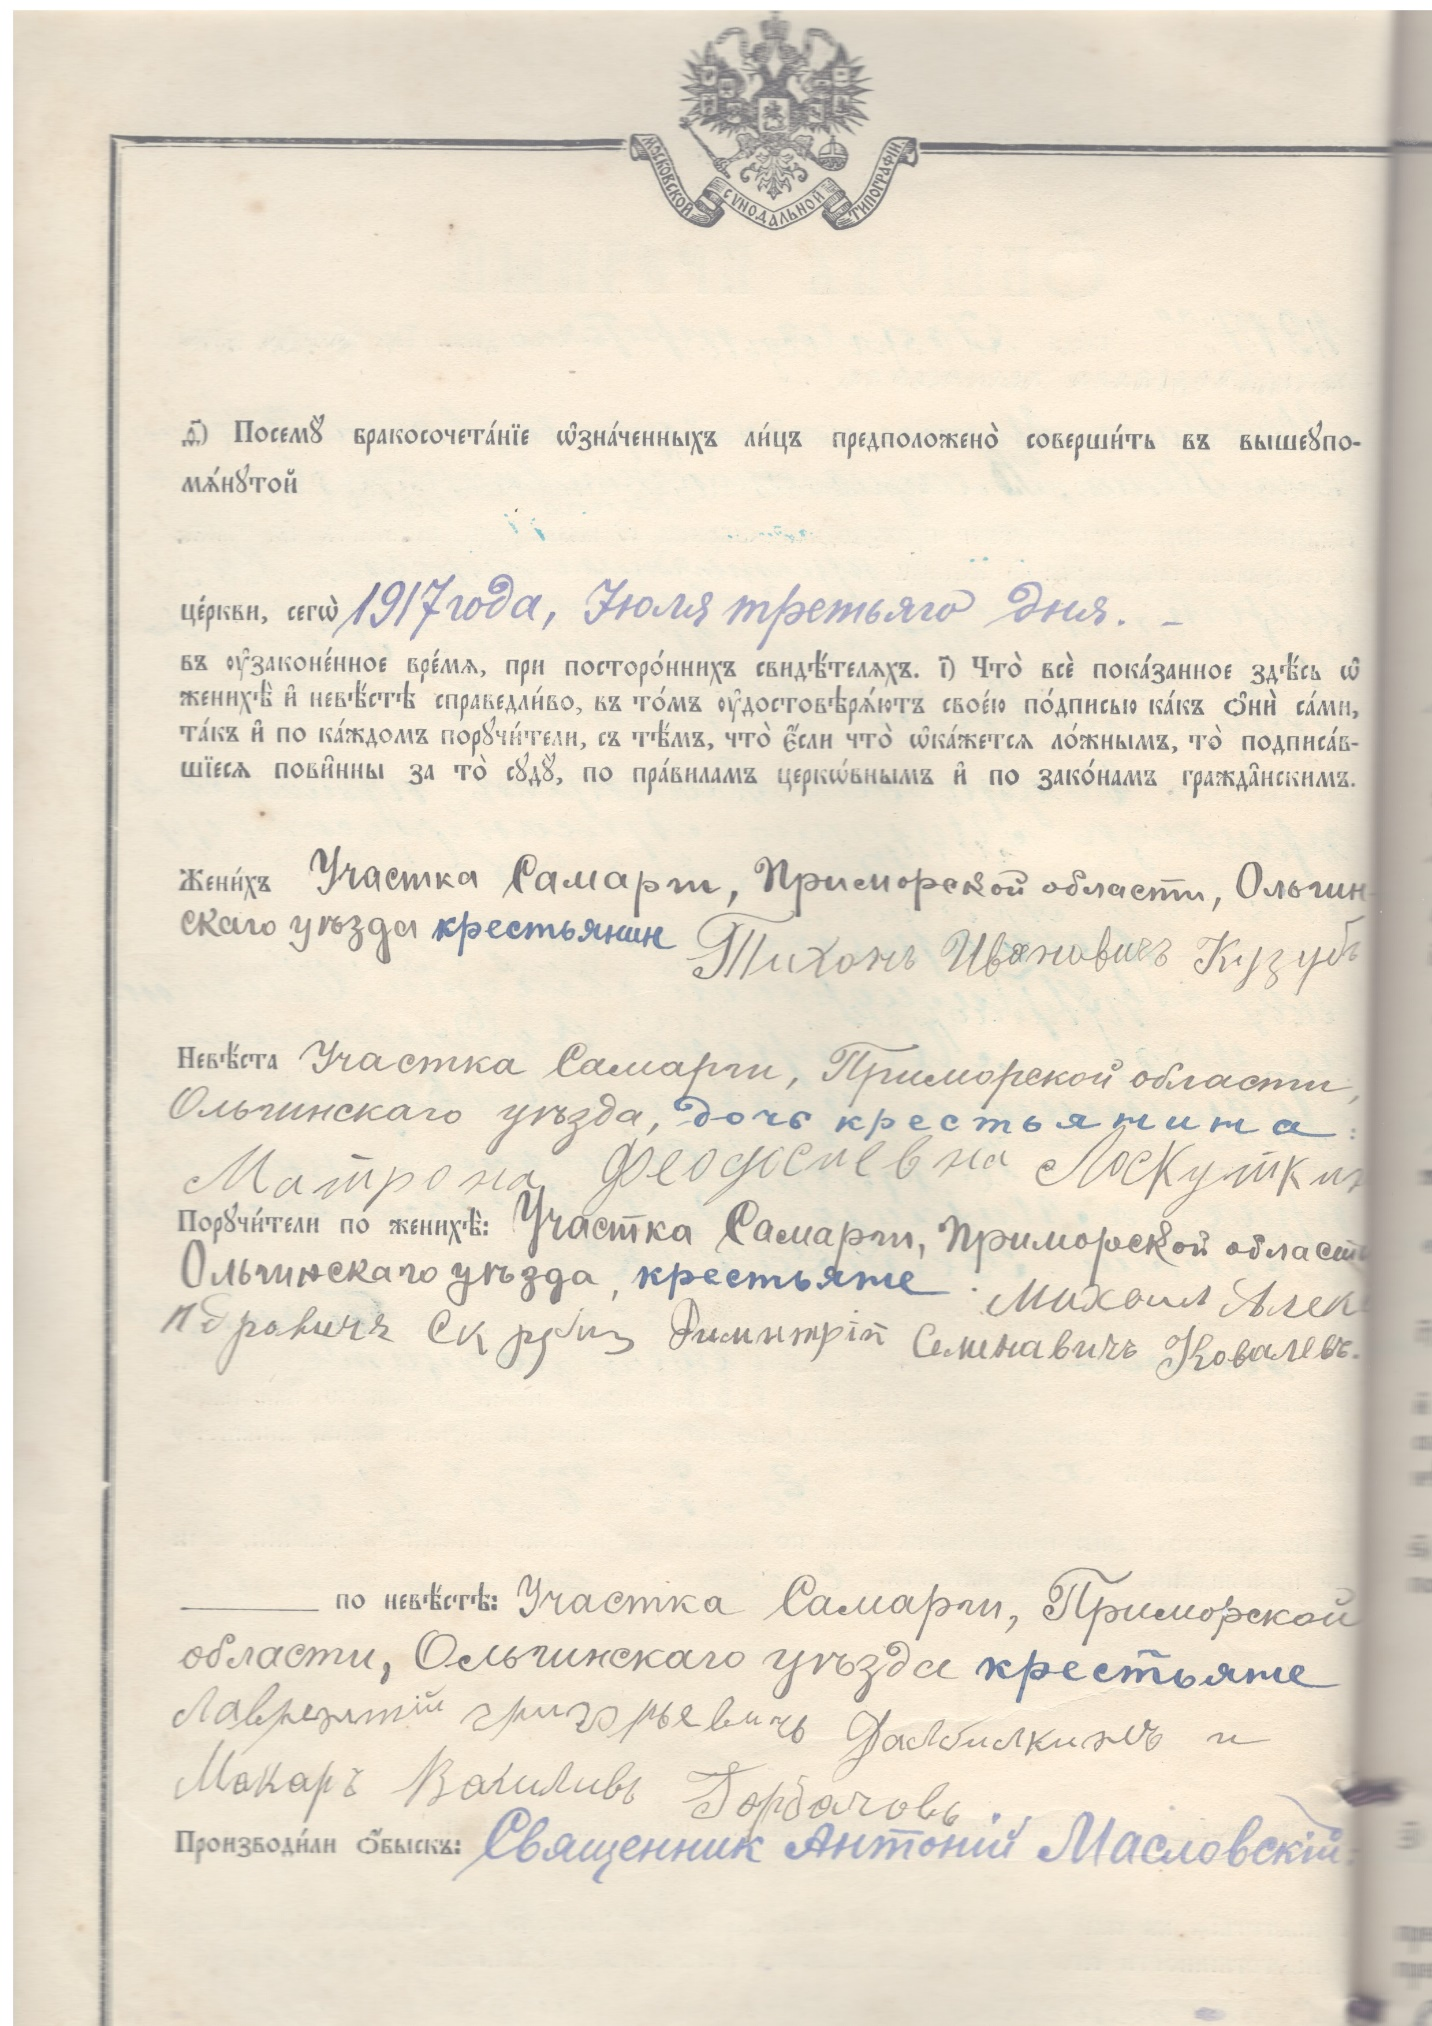 МОСКОВСКОЙ СѴНОДАЛЬНОЙ ТИПОГРАФІИ
Посемꙋ̀ бракосочета́нїе ѡ҆зна́ченныхъ ли́цъ предположено̀ соверши́ть въ вышеꙋпо-
мѧ́нꙋтой
це́ркви, сегѡ̀ 1917 года, Іюля третьяго дня. –
въ ᲂу҆законе́нное вре́мѧ, при посторо́ннихъ свидѣ́телѧхъ. і҃) Что̀ всѐ пока́занное здѣ́сь ѡ҆
женихѣ̀ и҆ невѣ́стѣ справедли́во, въ то́мъ ᲂу҆достовѣрѧ́ютъ свое́ю по́дписью ка́къ ѻ҆нѝ са́ми,
та́къ и҆ по ка́ждомъ порꙋчи́тели, съ тѣ́мъ, что̀ є҆́сли что̀ ѡ҆ка́жетсѧ ло́жнымъ, то̀ подписа́в-
шїесѧ пови́нны за то̀ сꙋдꙋ̀, по пра́виламъ церкѡ́внымъ и҆ по зако́намъ гражда́нскимъ.
Жени́хъ Участка Самарги, Приморской области, Ольгин-
скаго уѣзда крестьянин Тихонъ Ивановичъ Кузубъ
Невѣ́ста Участка Самарги, Приморской области,
Ольгинскаго уѣзда, дочь крестьянина:
Матрона Феодосиевна Лоскуткин
Порꙋчи́тели по женихѣ̀: Участка Самарги, Приморской област
Ольгинскаго уѣзда, крестьяне: Михаил Алек
Димитрій Семенавичъ Ковалевъ.
по невѣ́стѣ: Участка Самарги, Приморской
области, Ольгинскаго уѣзда крестьяне
Лаврентій григорьевичъ и
Макаръ Горбачовъ
Производи́ли ѻ҆́быскъ: Священник Антоній Масловскій.